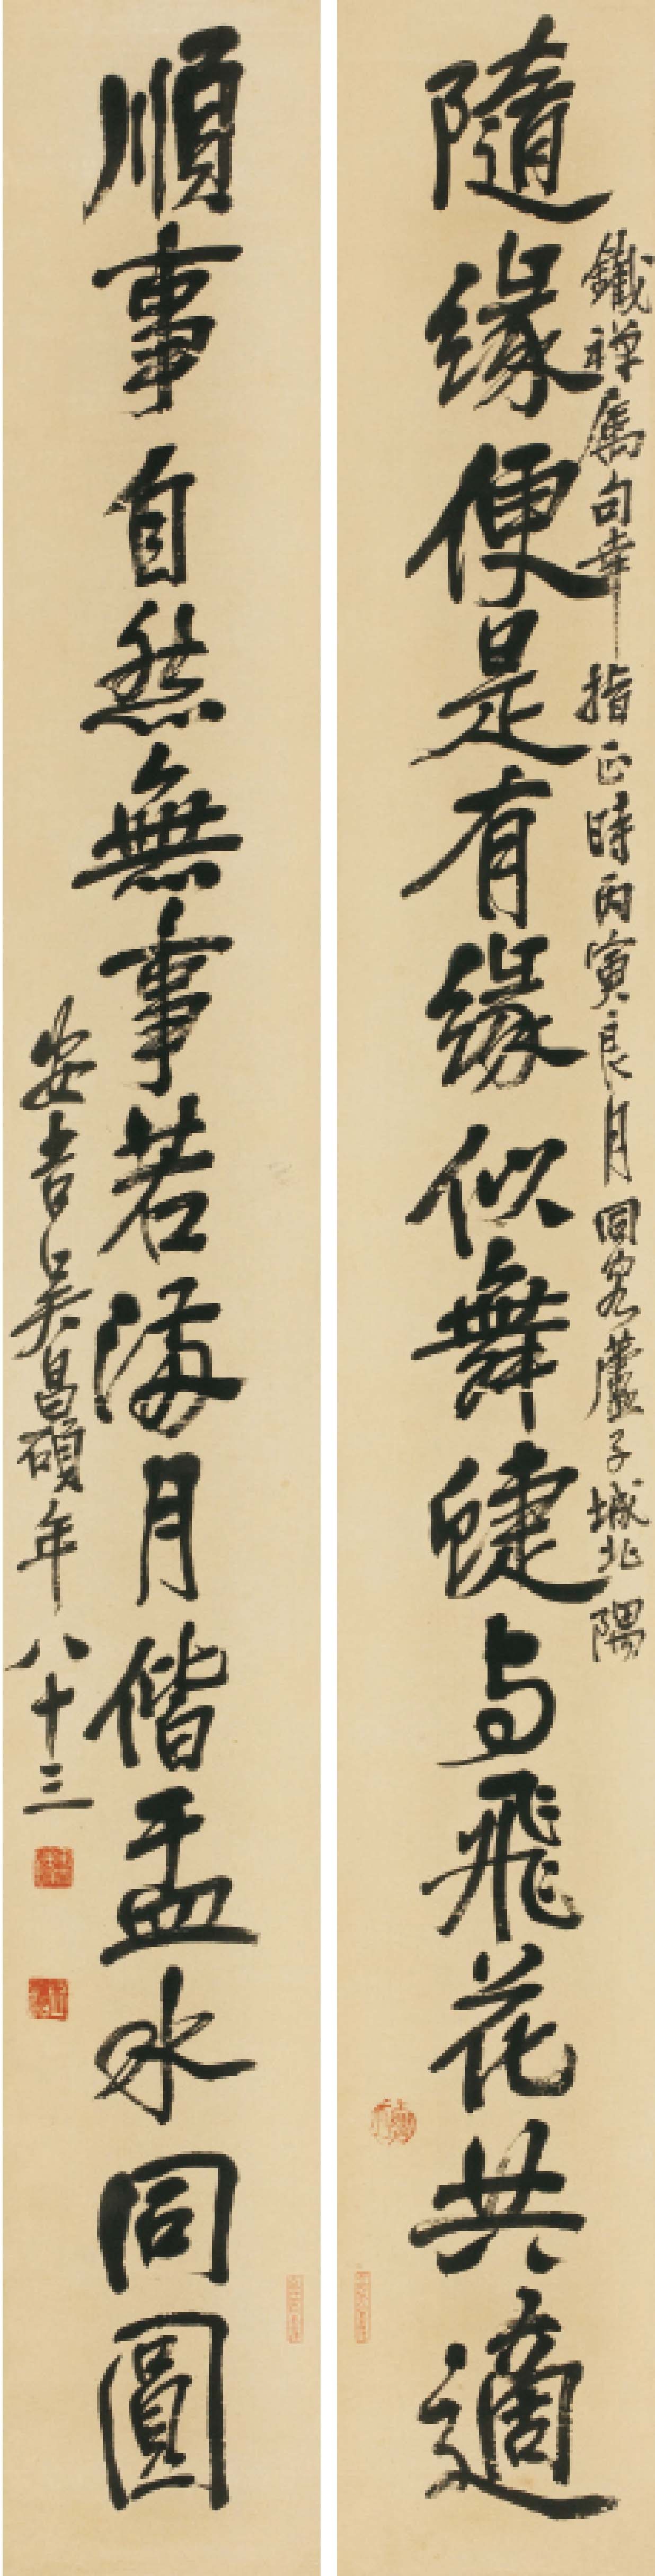 鐵禪属句幸指正時丙寅良月同客蘆子城北隅
隨緣便是有緣似舞蜨与飛花共適
順事自然無事若滿月偕盂水同圓
安吉吴昌碩年八十三